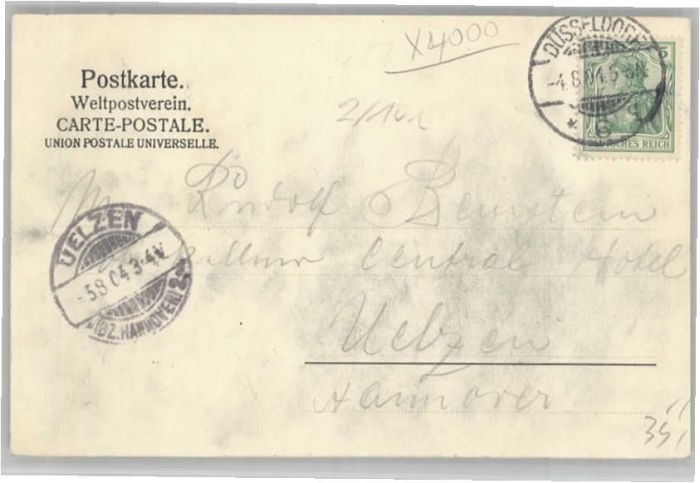 X4000
DÜSSELDORF
-4.8.04.5-6N.
5
* 6 q
DEUTSCHES REICH
Postkarte.
Weltpostverein.
CARTE-POSTALE.
UNION POSTALE UNIVERSELLE.
Mr Rudolf Bernstein
Central Hotel
Uelzen
Hannover
UELZEN
-5.8.04.3-4N.
(BZ. HANNOVER)
35,